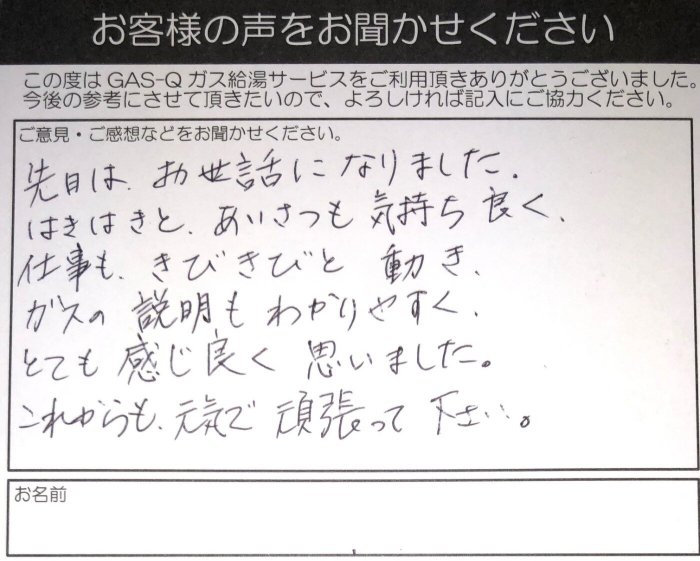 お客様の声をお聞かせください
この度は GAS-Q ガス給湯サービスをご利用頂きありがとうございました。
今後の参考にさせて頂きたいので、よろしければ記入にご協力ください。
ご意見・ご感想などをお聞かせください。
先日は、お世話になりました。
はきはきと、あいさつも気持ち良く、
仕事も、きびきびと動き、
ガスの説明もわかりやすく、
とても感じ良く思いました。
これからも、元気で頑張って下さい。
お名前